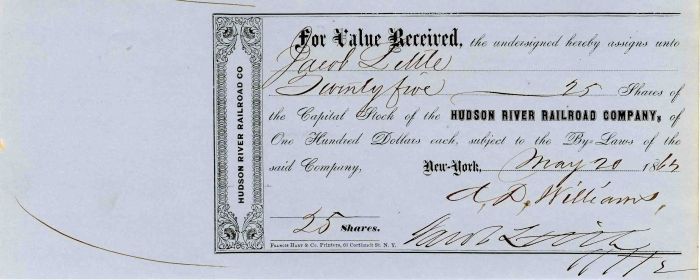 HUDSON RIVER RAILROAD CO
For Value Received, the undersigned hereby assigns unto
Jacob Little
Twenty five 25 Shares of
the Capital Stock of the HUDSON RIVER RAILROAD COMPANY, of
One Hundred Dollars each, subject to the By-Laws of the
said Company, New-York, May 20 186
A. D. Williams,
25 Shares. Jacob Little
FRANCIS HART & CO. Printers, 63 Cortlandt St. N. Y.